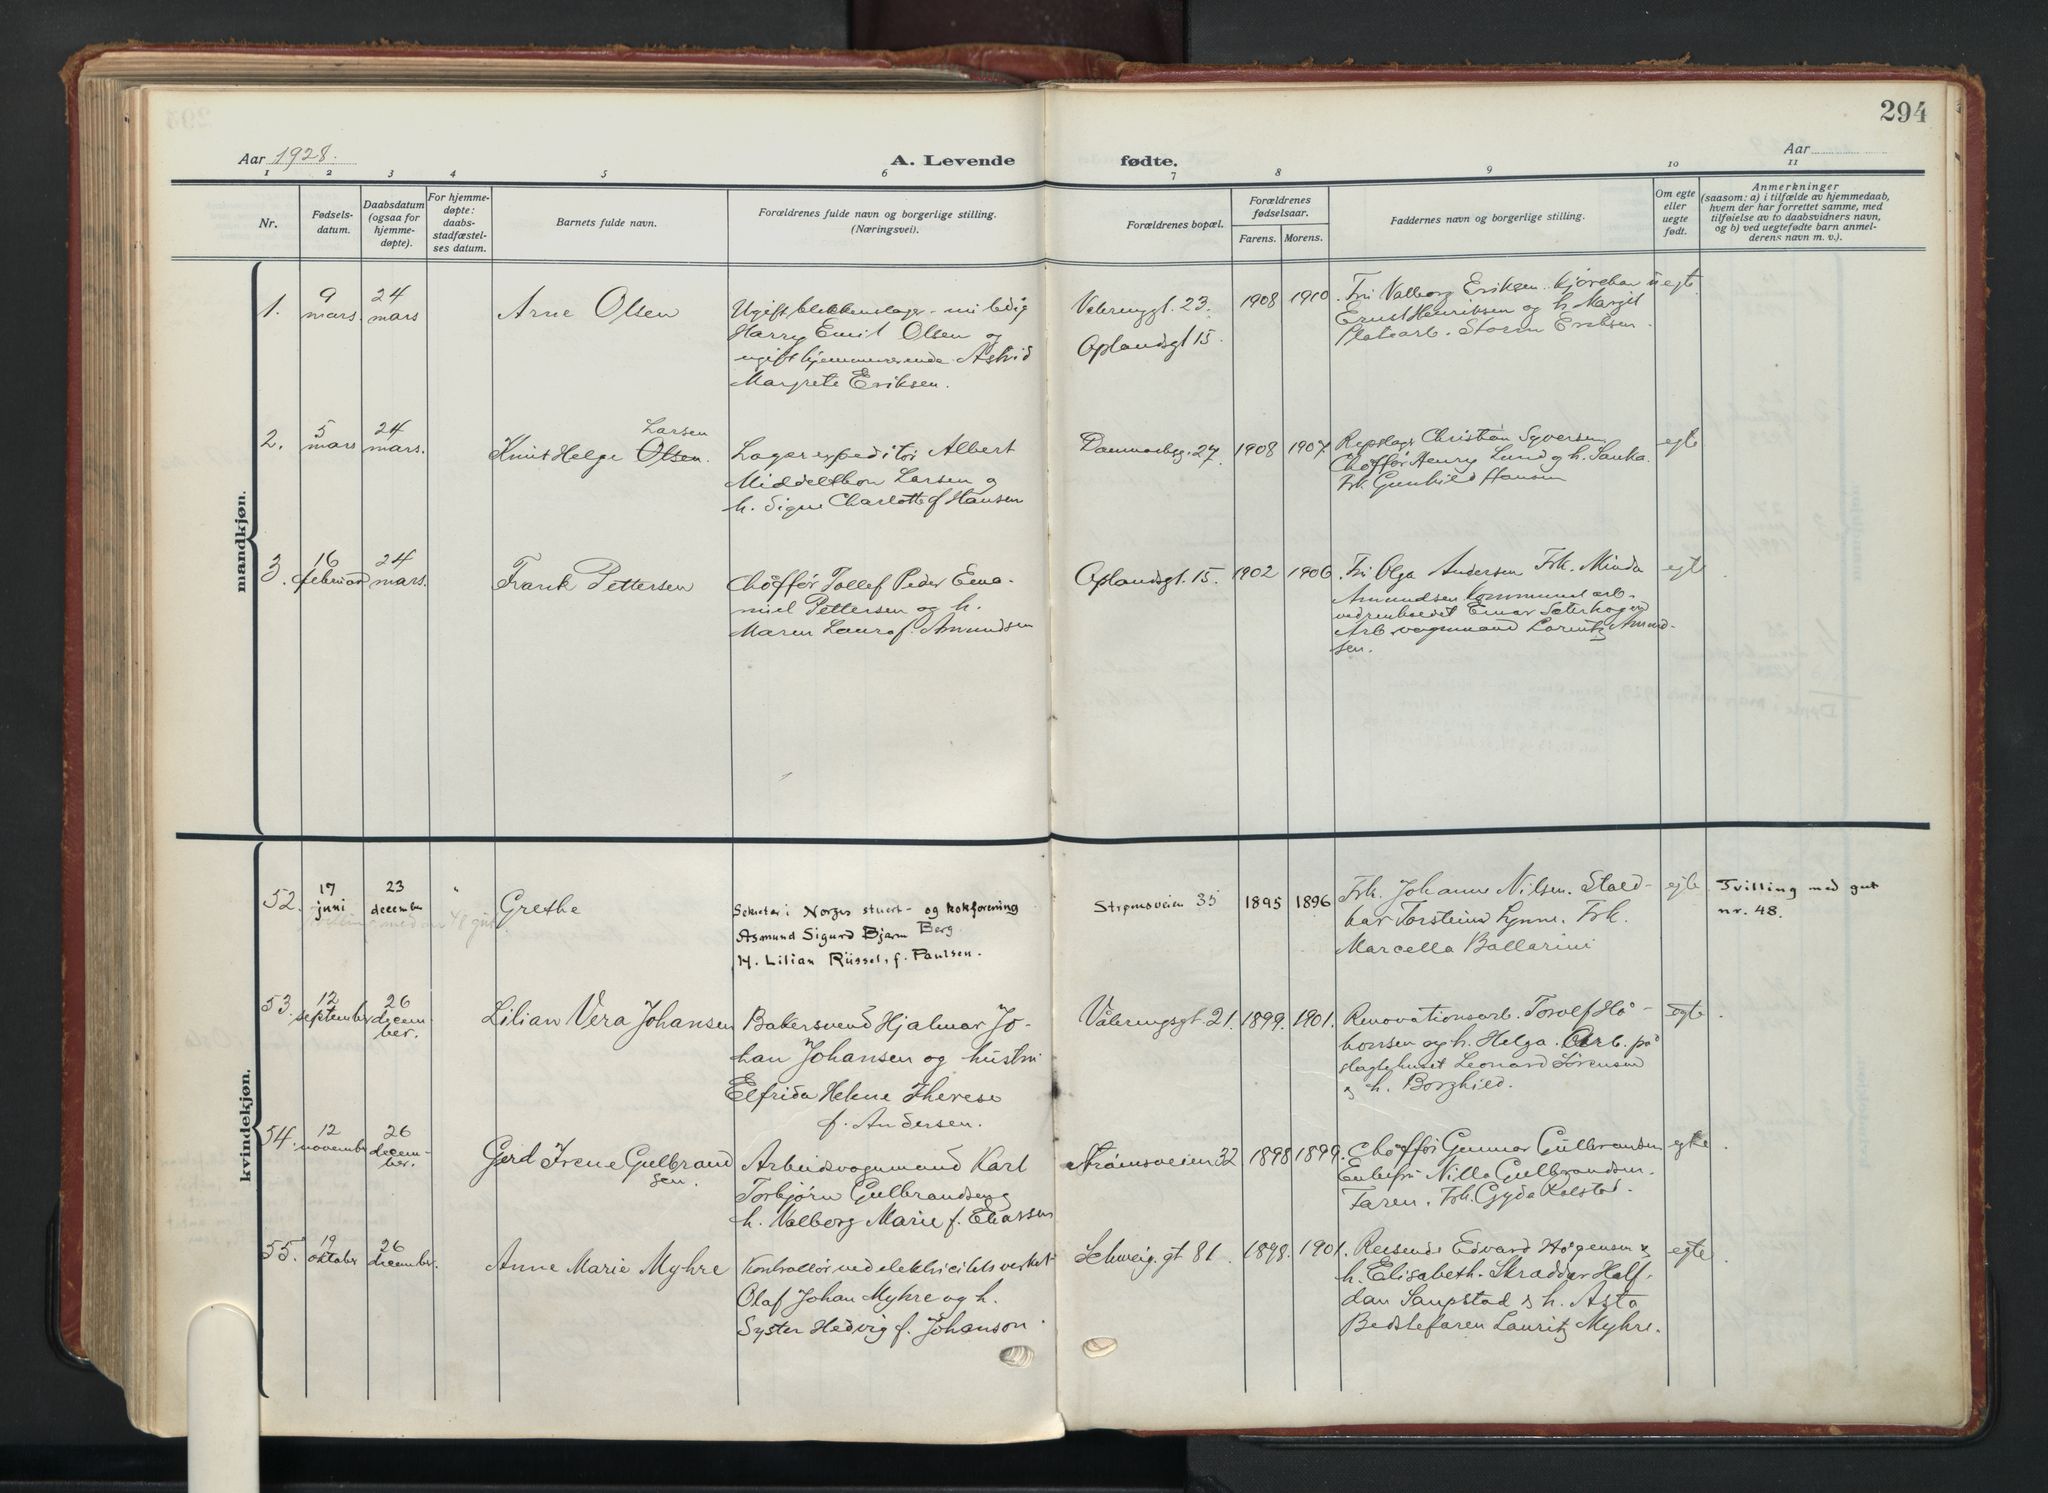 294
Aar 1928.
A. Levende fødte.
Aar
1 2 3 4 5 6 7 8 9 10 11
Nr.
Fødsels-
datum.
Daabsdatum
(ogsaa for
hjemme-
døpte).
For hjemme-
døpte:
daabs-
stadfæstel-
ses datum.
Barnets fulde navn.
Forældrenes fulde navn og borgerlige stilling.
(Næringsvei).
Forældrenes bopæl.
Forældrenes
fødselsaar.
Farens. Morens.
Faddernes navn og borgerlige stilling.
Om egte
eller
uegte
født.
Anmerkninger
(saasom: a) i tilfælde av hjemmedaab,
hvem der har forrettet samme, med
tilføielse av to daabsvidners navn,
og b) ved uegtefødte barn anmel-
derens navn m. v.).
mandkjøn.
1.
9
mars.
24
mars
Arne Olsen
Ugift blekkenslager
Harry Emil Olsen og
ugift hjemmeværende Astrid
Margrete Eriksen.
Valerenggt. 23.
Oplandsgt 15.
1908 1910.
Fru Valborg Eriksen.
Ernst Henriksen og h. Margit
Storm Eriksen.
uegte.
2.
5
mars
24
mars.
Larsen
Knut Helge Olsen.
Lagerexpeditør Albert
Middelthon Larsen og
h. Signe Charlotte f Hansen
27
1908 1907.
Christian Syversen
Chøffør Henry Lund og h.
Frk. Gunhild Hansen
egte
3.
16
februar
24
mars.
Frank Pettersen
Chøffør Tollef Peder Ema-
nuel Pettersen og h.
Maren Laura f. Amundsen
Oplandsgt. 15.
1902 1906
Fru Olga Andersen Frk. Minda
Amundsen
Einar
Arb. vognmand Lorentz Amund-
sen.
egte
kvindekjøn.
52.
17
juni
23
december
Grethe
Sekretær i Norges stuert- og kokforening
Asmund Sigurd Bjarm Berg
H. Lilian Rüssel, f. Paulsen.
Strømsveien 35
1895 1896
Frk. Johanne Nilsen.
Torsteina Lynne. Frk.
Marcella Ballarini
egte
Tvilling med gut
nr. 48.
53.
12
september
26
decem-
ber.
Lilian Vera Johansen
Bakersvend Hjalmar Jo-
han Johansen og hustru
Elfrida Helene Therese
f. Andersen.
Våleringsgt. 21.
1899. 1901.
Renovationsarb. Torolf Hå-
konsen og h. Helga. Arb. på
slagtehuset Leonard Sørensen
og h. Borghild.
egte
54.
12
november
26
decem-
ber.
Gerd Irene Gulbrand
sen.
Arbeidsvognmand Karl
Torbjørn Gulbrandsen og
h. Valborg Marie f. Eliassen
Strømsveien 32
1898 1899.
Chøffør Gunnar Gulbransen
Enkefru Nilla Gulbrandsen.
Faren. Frk. Gyda Kolstad.
egte
55.
19
oktober
26
december.
Anne Marie Myhre
Kontrollør ved elektricitetsverket
Olaf Johan Myhre og h.
Syster Hedvig f. Johanson.
Schweig. gt 81.
1898. 1901.
Reisende Edvard Høgensen &
h. Elisabeth. Skrædder Half-
dan Saupstad & h. Asta
Bedstefaren Lauritz Myhre.
egte